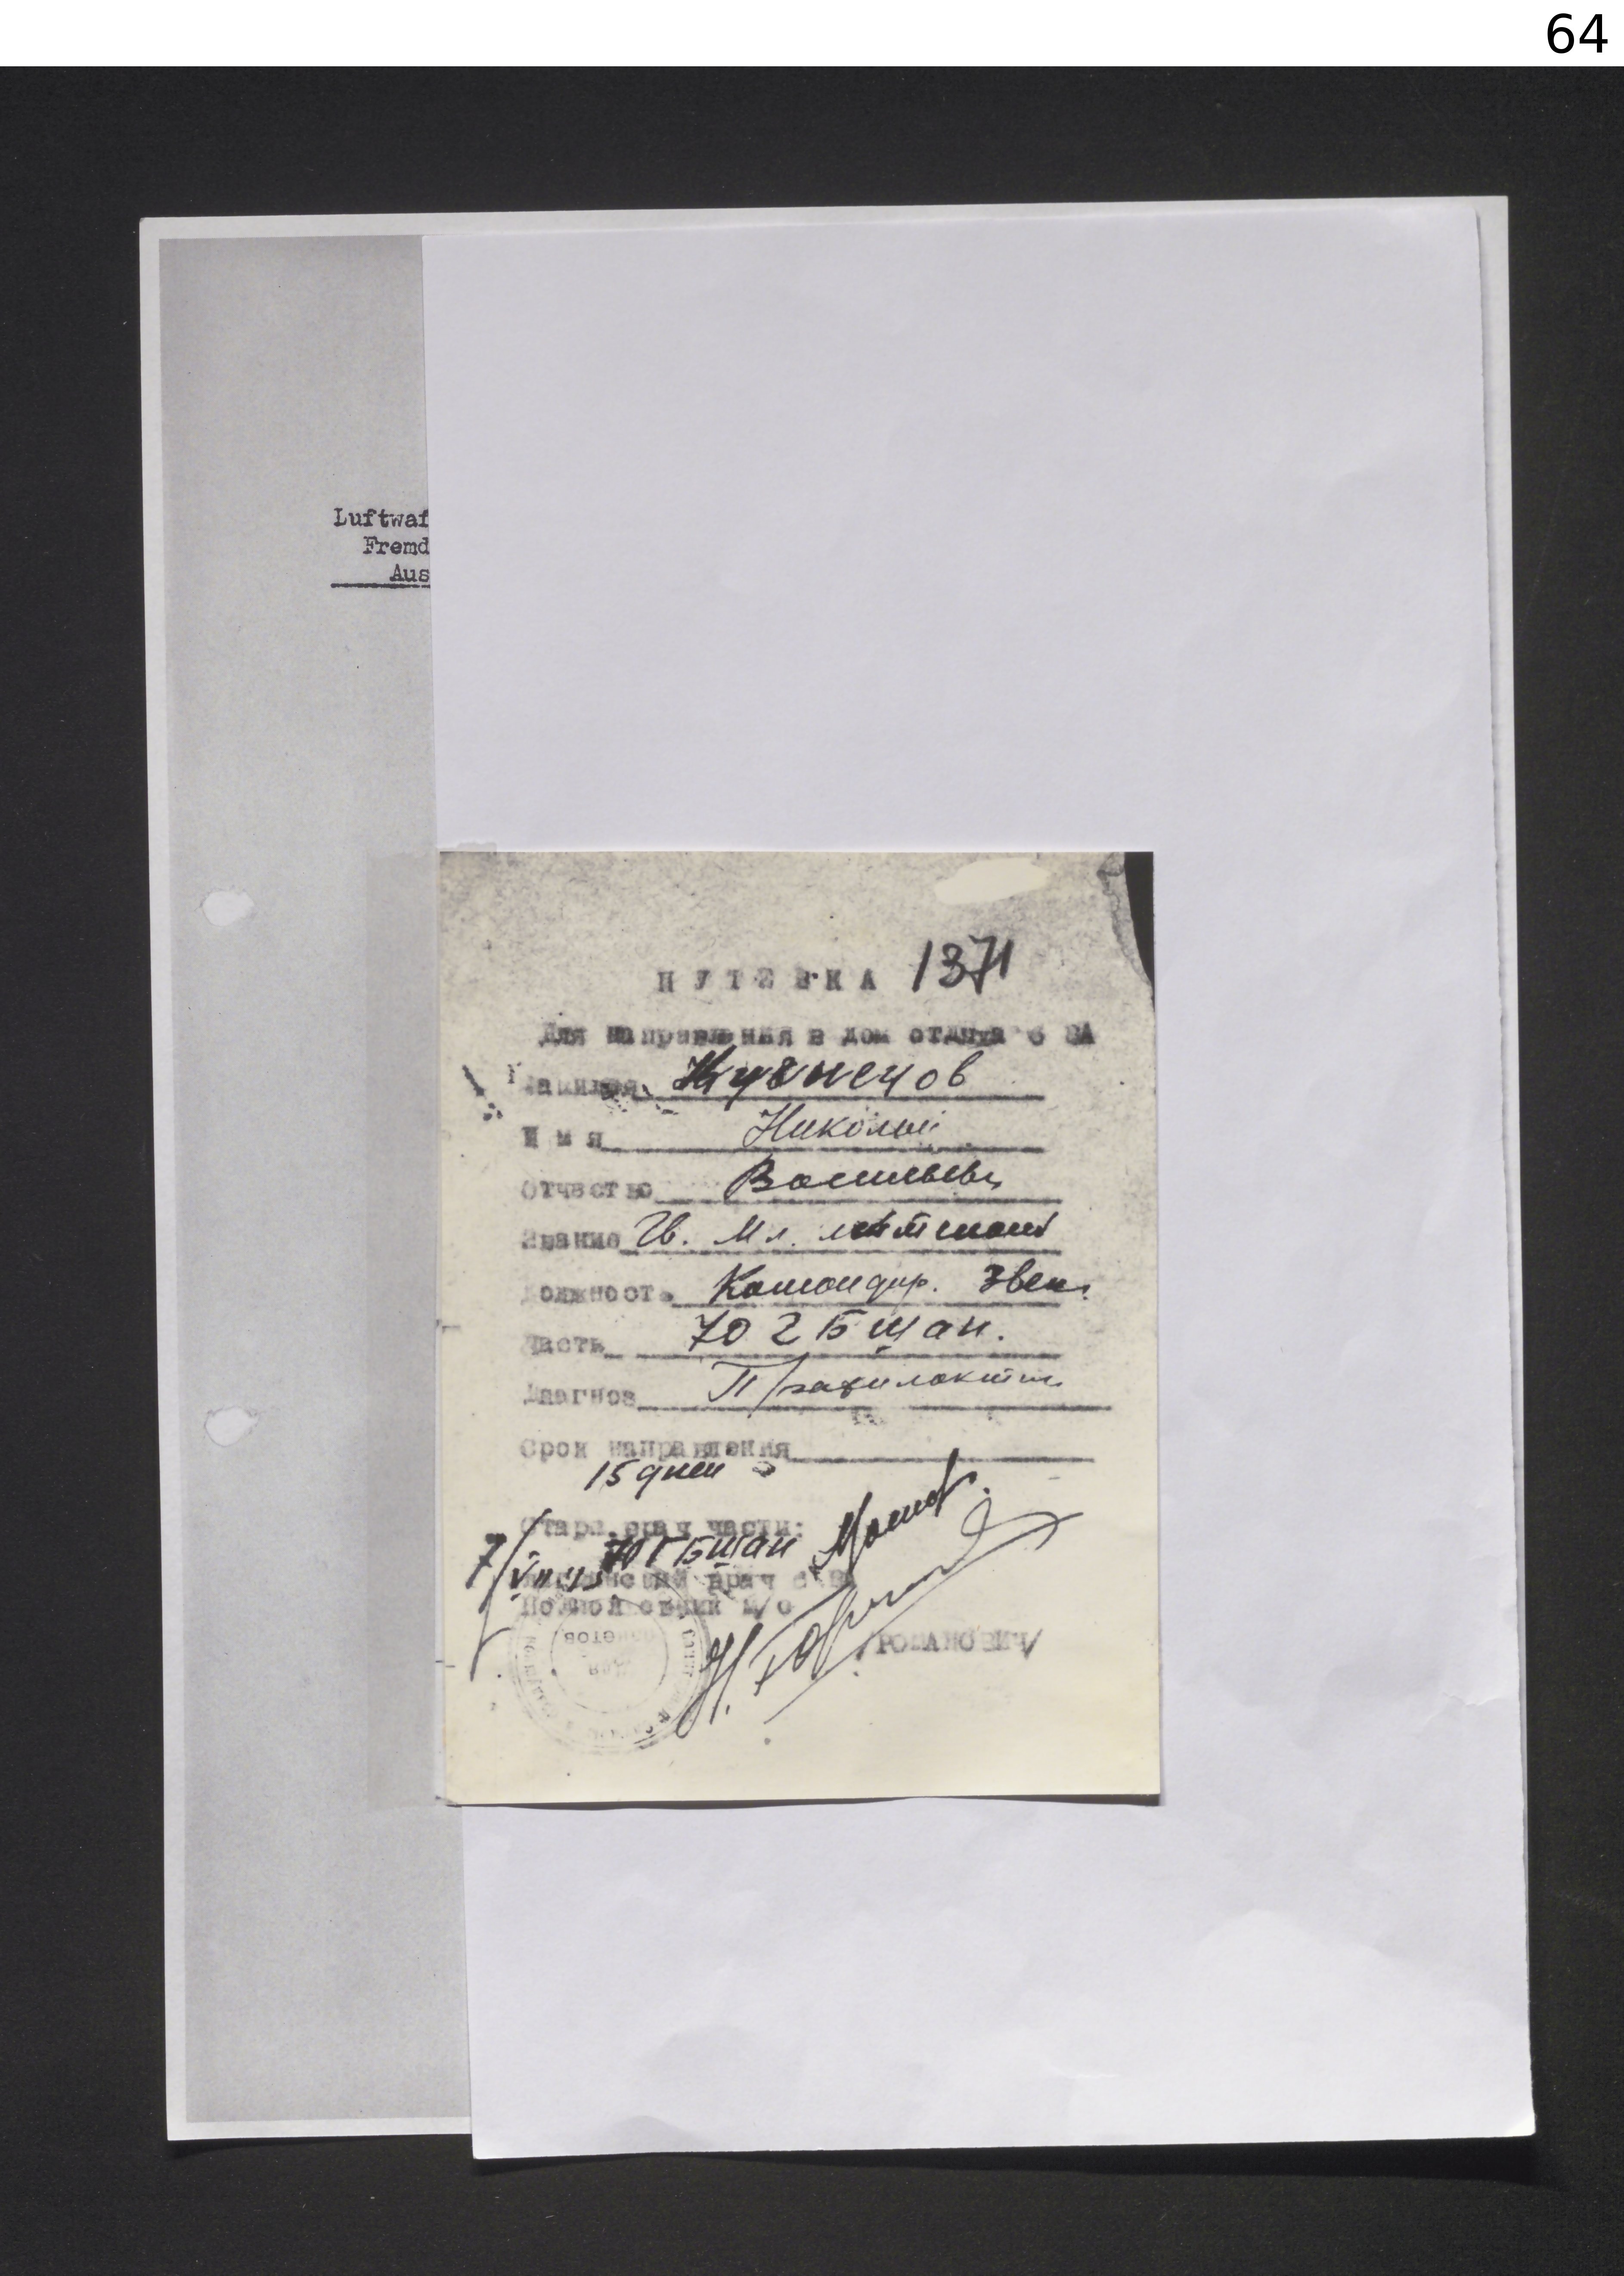 64
Luftwaf
Fremd
Aus
ПУТЕВКА 1371
Для направления в дом отдыха 6 ВА
Фамилия Кузнецов
Имя Николай
Отчество Васильеви
Звание Гв. Мл. лейтенант
Должность Командир. Звен.
Часть 70 гБшап.
Диагноз Профилактик
Срок направления
15 дней
Старш. врач части:
70 ГБшап
врач 6 ВА
Подполковник м/с
/РОМАНОВИЧ/